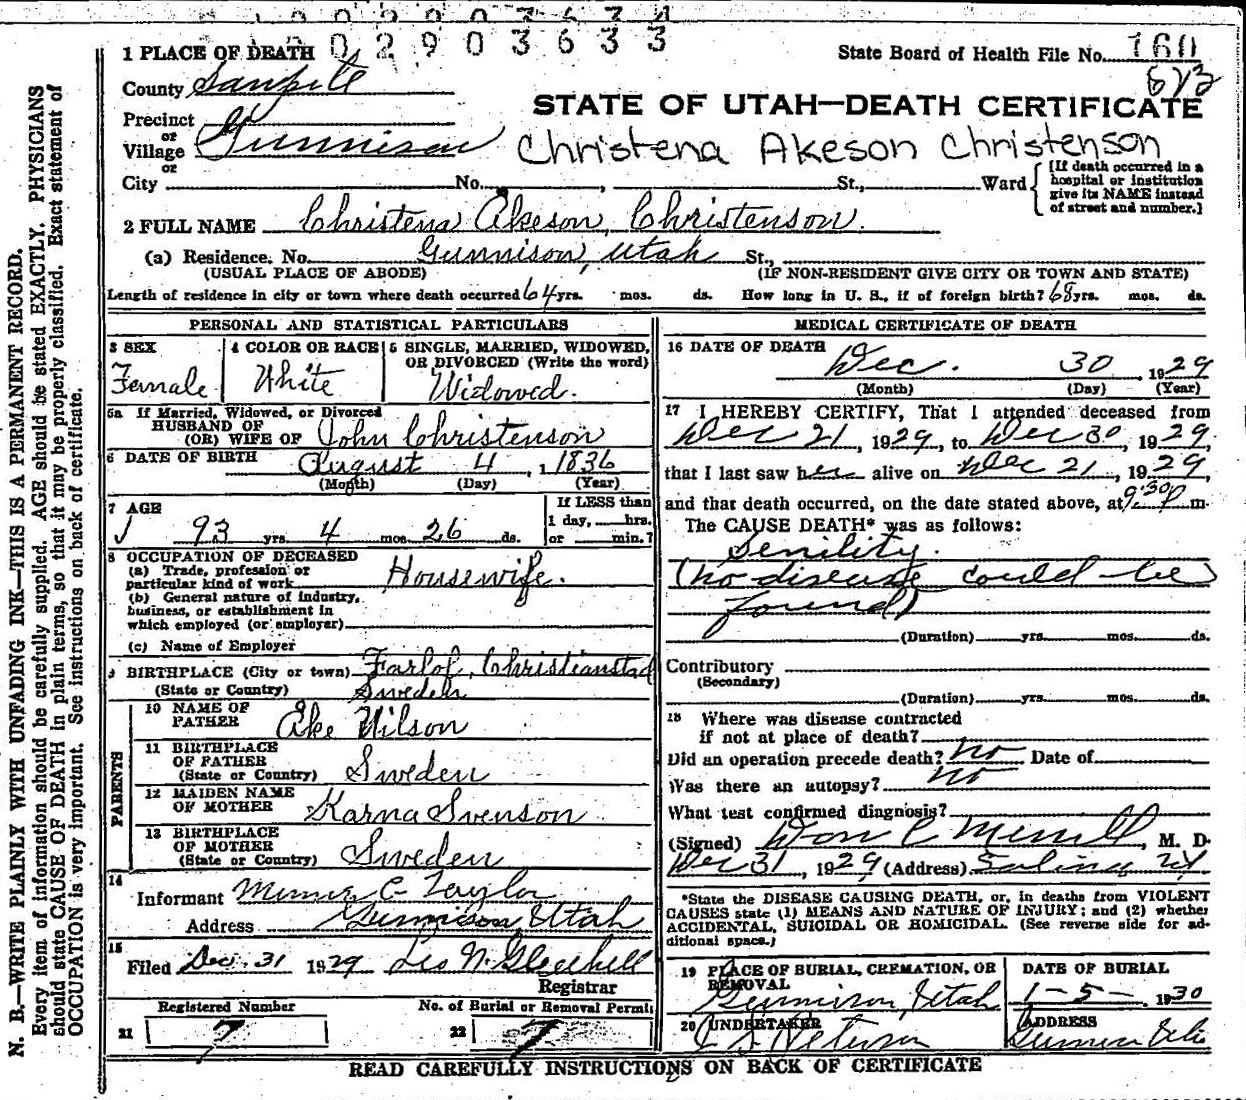 1 0 0 2 9 0 3 6 3 4
0 0 2 9 0 3 6 3 3
1 PLACE OF DEATH
State Board of Health File No. 160
County Sanpete
813
STATE OF UTAH—DEATH CERTIFICATE
Precinct
or
Village Gunnison
or
Christena Akeson Christenson
City No. , St., Ward
[If death occurred in a
hospital or institution
give its NAME instead
of street and number.]
2 FULL NAME Christena Akeson, Christenson.
(a) Residence. No. Gunnison, Utah St.,
(USUAL PLACE OF ABODE) (IF NON-RESIDENT GIVE CITY OR TOWN AND STATE)
Length of residence in city or town where death occurred 64 yrs. mos. ds. How long in U. S., if of foreign birth? 68 yrs. mos. ds.
PERSONAL AND STATISTICAL PARTICULARS
3 SEX
Female
4 COLOR OR RACE
White
5 SINGLE, MARRIED, WIDOWED,
OR DIVORCED (Write the word)
Widowed.
5a If Married, Widowed, or Divorced
HUSBAND OF
(OR) WIFE OF John Christenson
6 DATE OF BIRTH August 4, 1836
(Month) (Day) (Year)
7 AGE
93 yrs. 4 mos. 26 ds.
If LESS than
1 day, hrs.
or min.?
8 OCCUPATION OF DECEASED
(a) Trade, profession or
particular kind of work Housewife.
(b) General nature of industry,
business, or establishment in
which employed (or employer)
(c) Name of Employer
9 BIRTHPLACE (City or town) Farlof, Christianstad
(State or Country) Sweden
PARENTS
10 NAME OF
FATHER Ake Nilson
11 BIRTHPLACE
OF FATHER
(State or Country) Sweden
12 MAIDEN NAME
OF MOTHER Karna Svenson
13 BIRTHPLACE
OF MOTHER
(State or Country) Sweden
14
Informant Minnie C Taylor
Address Gunnison, Utah
15
Filed Dec. 31 1929 Leo N. Gledhill
Registrar
Registered Number
21 7
No. of Burial or Removal Permit
22 7
MEDICAL CERTIFICATE OF DEATH
16 DATE OF DEATH
Dec. 30 1929
(Month) (Day) (Year)
17 I HEREBY CERTIFY, That I attended deceased from
Dec 21, 1929, to Dec 30, 1929,
that I last saw her alive on Dec 21, 1929,
and that death occurred, on the date stated above, at 9:30 p m.
The CAUSE DEATH* was as follows:
Senility.
(no disease could be
found)
(Duration) yrs. mos. ds.
Contributory
(Secondary)
(Duration) yrs. mos. ds.
18 Where was disease contracted
if not at place of death?
Did an operation precede death? no Date of
Was there an autopsy? no
What test confirmed diagnosis?
(Signed) Don C Merrill, M. D.
Dec 31, 1929 (Address) Salina Ut
*State the DISEASE CAUSING DEATH, or, in deaths from VIOLENT
CAUSES state (1) MEANS AND NATURE OF INJURY; and (2) whether
ACCIDENTAL, SUICIDAL OR HOMICIDAL. (See reverse side for ad-
ditional space.)
19 PLACE OF BURIAL, CREMATION, OR
REMOVAL
Gunnison, Utah
DATE OF BURIAL
1-5- 1930
20 UNDERTAKER
Peterson
ADDRESS
Gunnison Utah
READ CAREFULLY INSTRUCTIONS ON BACK OF CERTIFICATE
N. B.—WRITE PLAINLY WITH UNFADING INK—THIS IS A PERMANENT RECORD.
Every item of information should be carefully supplied. AGE should be stated EXACTLY. PHYSICIANS
should state CAUSE OF DEATH in plain terms, so that it may be properly classified. Exact statement of
OCCUPATION is very important. See instructions on back of certificate.